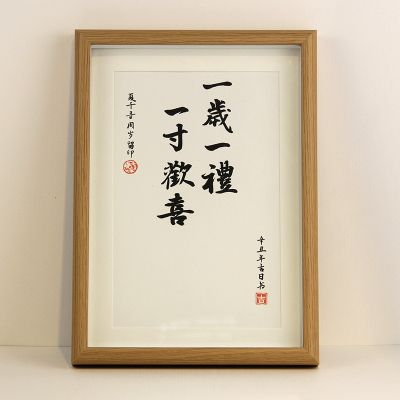 一歲一禮
一寸歡喜
辛丑年吉日书
夏千喜周岁留印